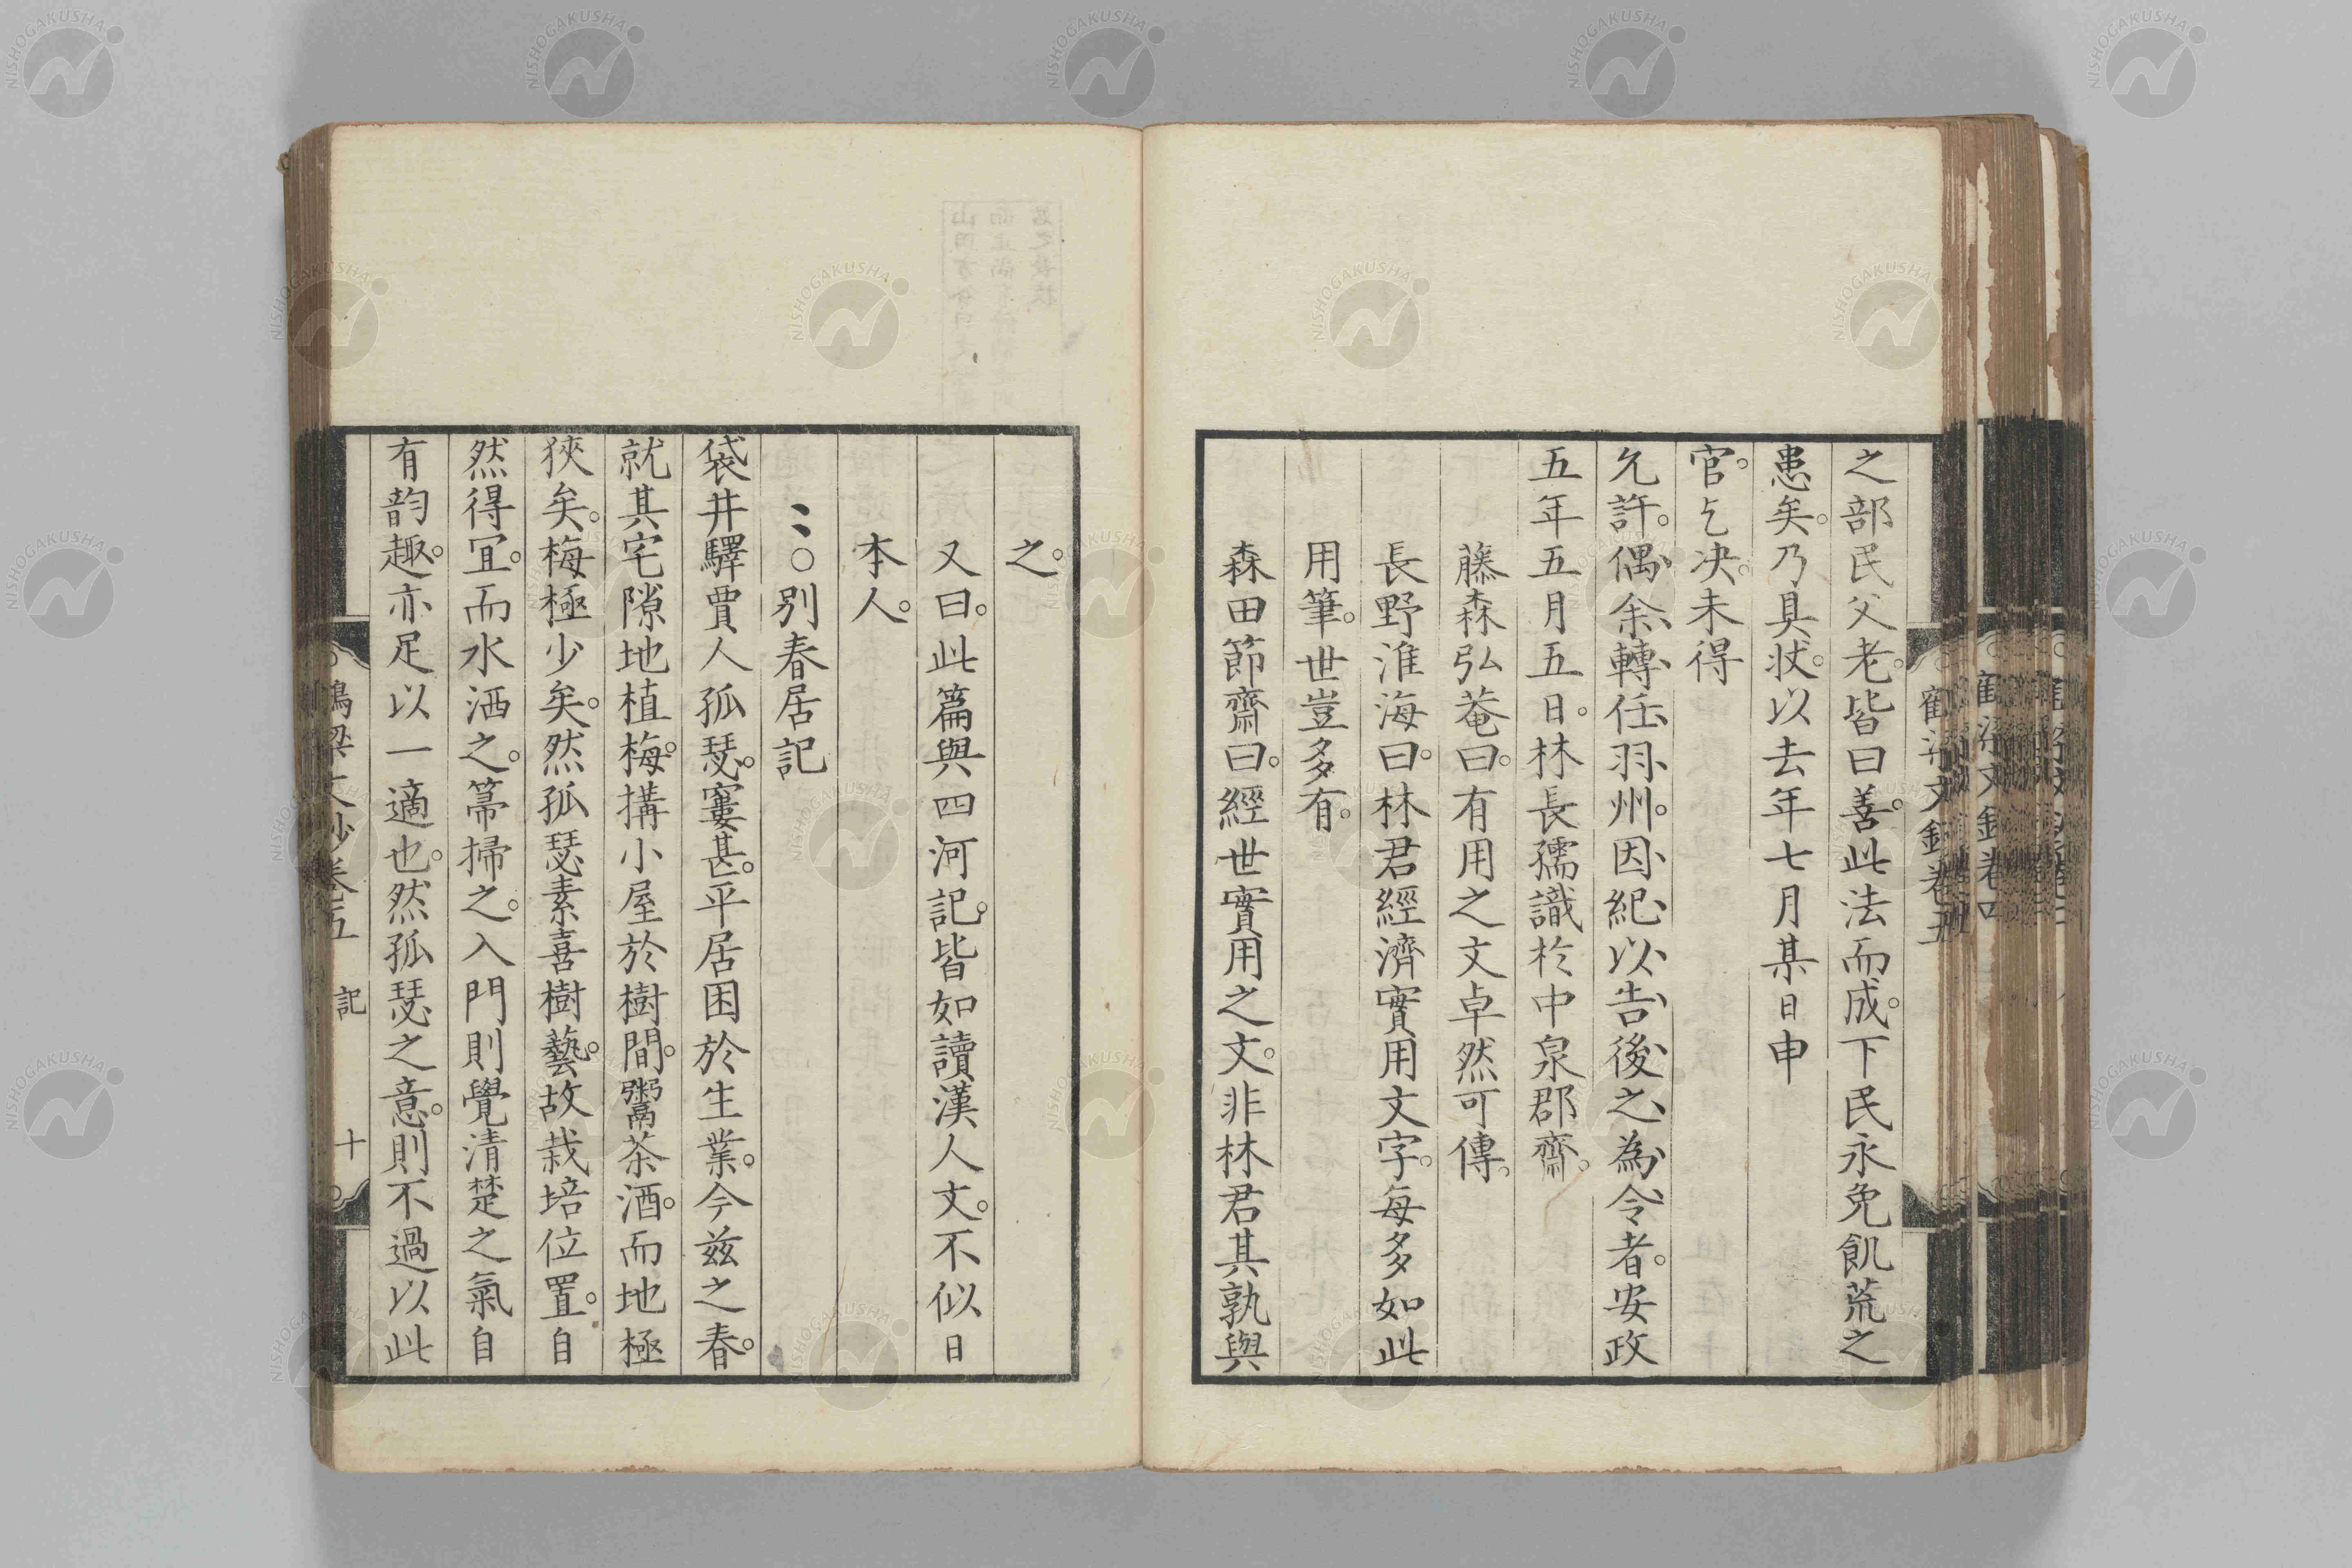 之部民父老。皆曰善。此法而成。下民永免飢荒之
患矣。乃具狀。以去年七月某日申
官。乞决。未得
允許。偶余轉任羽州。因紀以告後之為令者。安政
五年五月五日。林長孺識於中泉郡齋。
藤森弘菴曰。有用之文卓然可傳。
長野淮海曰。林君經濟實用文字。每多如此
用筆。世豈多有。
森田節齋曰。經世實用之文。非林君其孰與
之。
又曰。此篇與四河記。皆如讀漢人文。不似日
本人。
〻○別春居記
袋井驛賈人孤瑟。窶甚。平居困於生業。今茲之春。
就其宅隙地植梅。搆小屋於樹間。鬻茶酒。而地極
狹矣。梅極少矣。然孤瑟素喜樹藝。故栽培位置。自
然得宜。而水洒之。箒掃之。入門則覺清楚之氣自
有韵趣。亦足以一適也。然孤瑟之意。則不過以此
鶴梁文鈔卷五 記 十
NISHOGAKUSHA